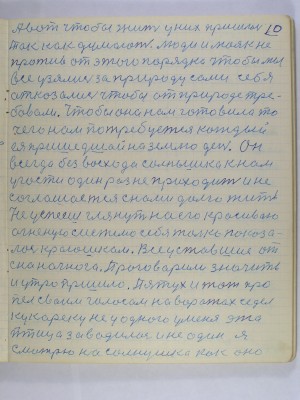 10
А вот чтобы жить у них пришлось
так как думают. Люди и мояк не
против от этого порядка чтобы мы
все узялись за природу сами себя
отказалис чтобы от природе тре-
бовали. Чтобы она нам готовила то
чего нам потребуется каждый
пришедшай на землю ден. Он
всегда без восхода солнышка к нам
у гости один раз не приходить и не
соглашается с нами долго жить
Не успеиш глянуть на его красиваю
огненую сиело себя только показа-
лос краюшкам. Все уставшие от
сна на ногоз. Проговарим значить
и утро пришло. Пятух и тот про
пел сваим голосам на варотах седя
кукареку не у одного у меня эта
птица заводилас и не один я
смотрю на солнушка как оно